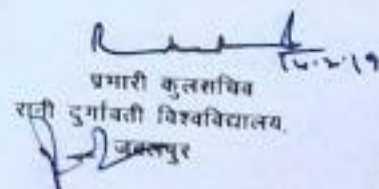 14.2.19
प्रभारी कुलसचिव
रानी दुर्गावती विश्वविद्यालय,
जबलपुर